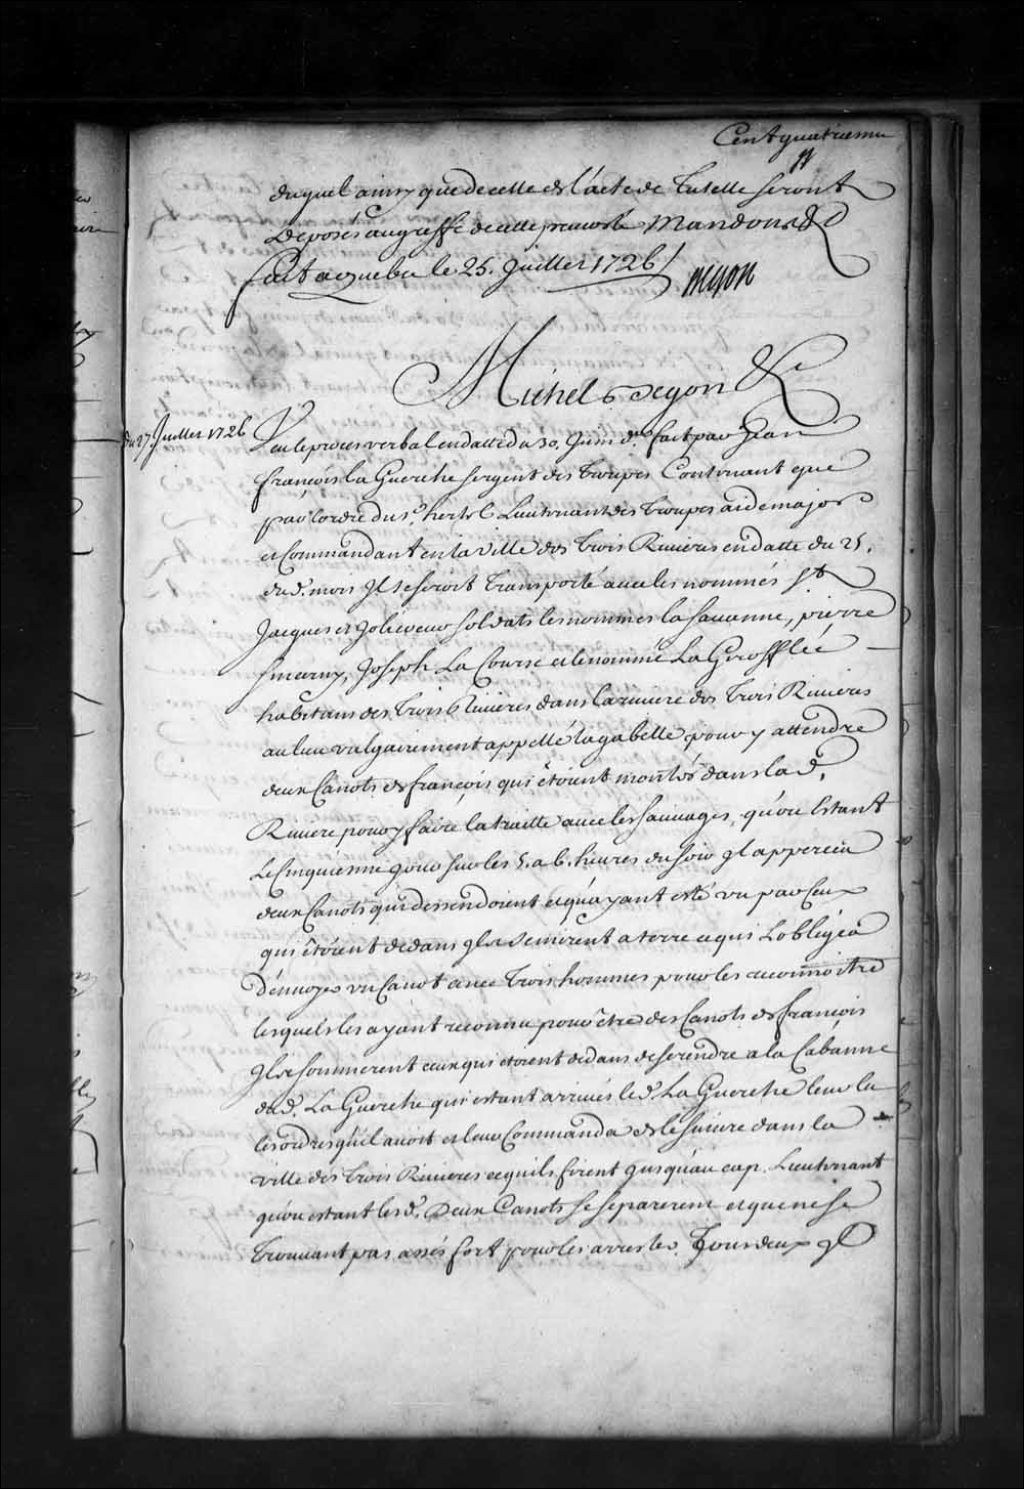 Cent quatrieme
duquel ainsy que de celle de l'acte de tutelle seront
Deposés au greffe de cette prevosté Mandons &
fait a quebec le 25. Juillet 1726/. Begon
Michel Begon &c
du 27 Juillet 1726
Veu le procès verbal en datte du 30. Juin dr. fait par Jean
françois la Guerche sergent des Troupes Contenant que
par l'ordre du sr. hertel Lieutenant des Troupes aide major
et Commandant en la ville des trois Rivieres en datte du 25.
dud. mois Il se seroit transporté avec les nommés st
Jacques et Jolicoeur soldats les nommés la Savanne, pierre
Joseph La Course et le nommé La Gerofflée
habitans des trois Rivieres dans la riviere des trois Rivieres
au lieu vulgairement appellé la gabelle pour y attendre
deux Canots de françois qui êtoient montés dans lad.
Riviere pour y faire la traitte avec les sauvages, qu'ou Estant
Le Cinquieme jour sur les 5. a 6. heures du soir Il apperceu
deux Canots qui dessendoient et qu'ayant esté vu par Ceux
qui êtoient dedans Ils se mirent a terre ce qui L'obligea
d'envoyer un Canot avec trois hommes pour les reconnoitre
lesquels les ayant reconnu pour être des Canots de françois
Ils sommerent ceux qui etoient dedans de se rendre a la Cabanne
dud. La Guerche qui estant arrivés led. La Guerche leur lu
les ordres qu'il avoit et leur Commanda de le suivre dans la
ville des trois Rivieres ce qu'ils firent jusqu'au cap. Lieutenant
qu'ou estant lesd. Deux Canots se separerent et que ne se
trouvant pas assés fort pour les arrester Tous deux Il